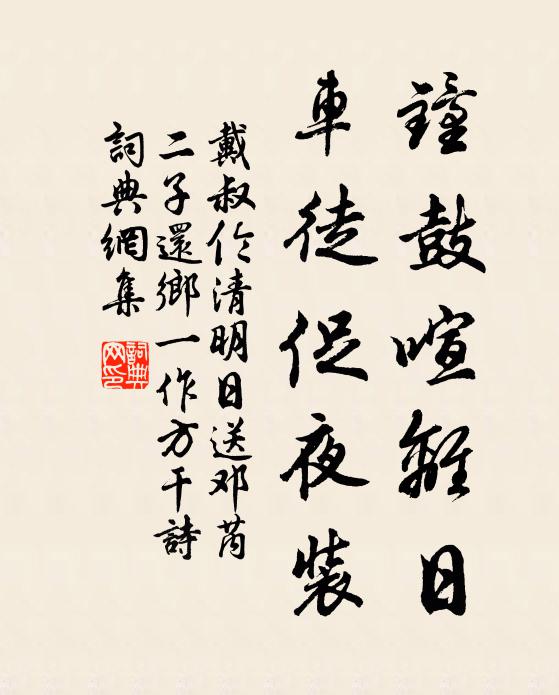 鐘鼓喧離日
車徒促夜裝
戴叔伦清明日送邓芮
二子還鄉一作方干詩
詞典網集
詞典
网印